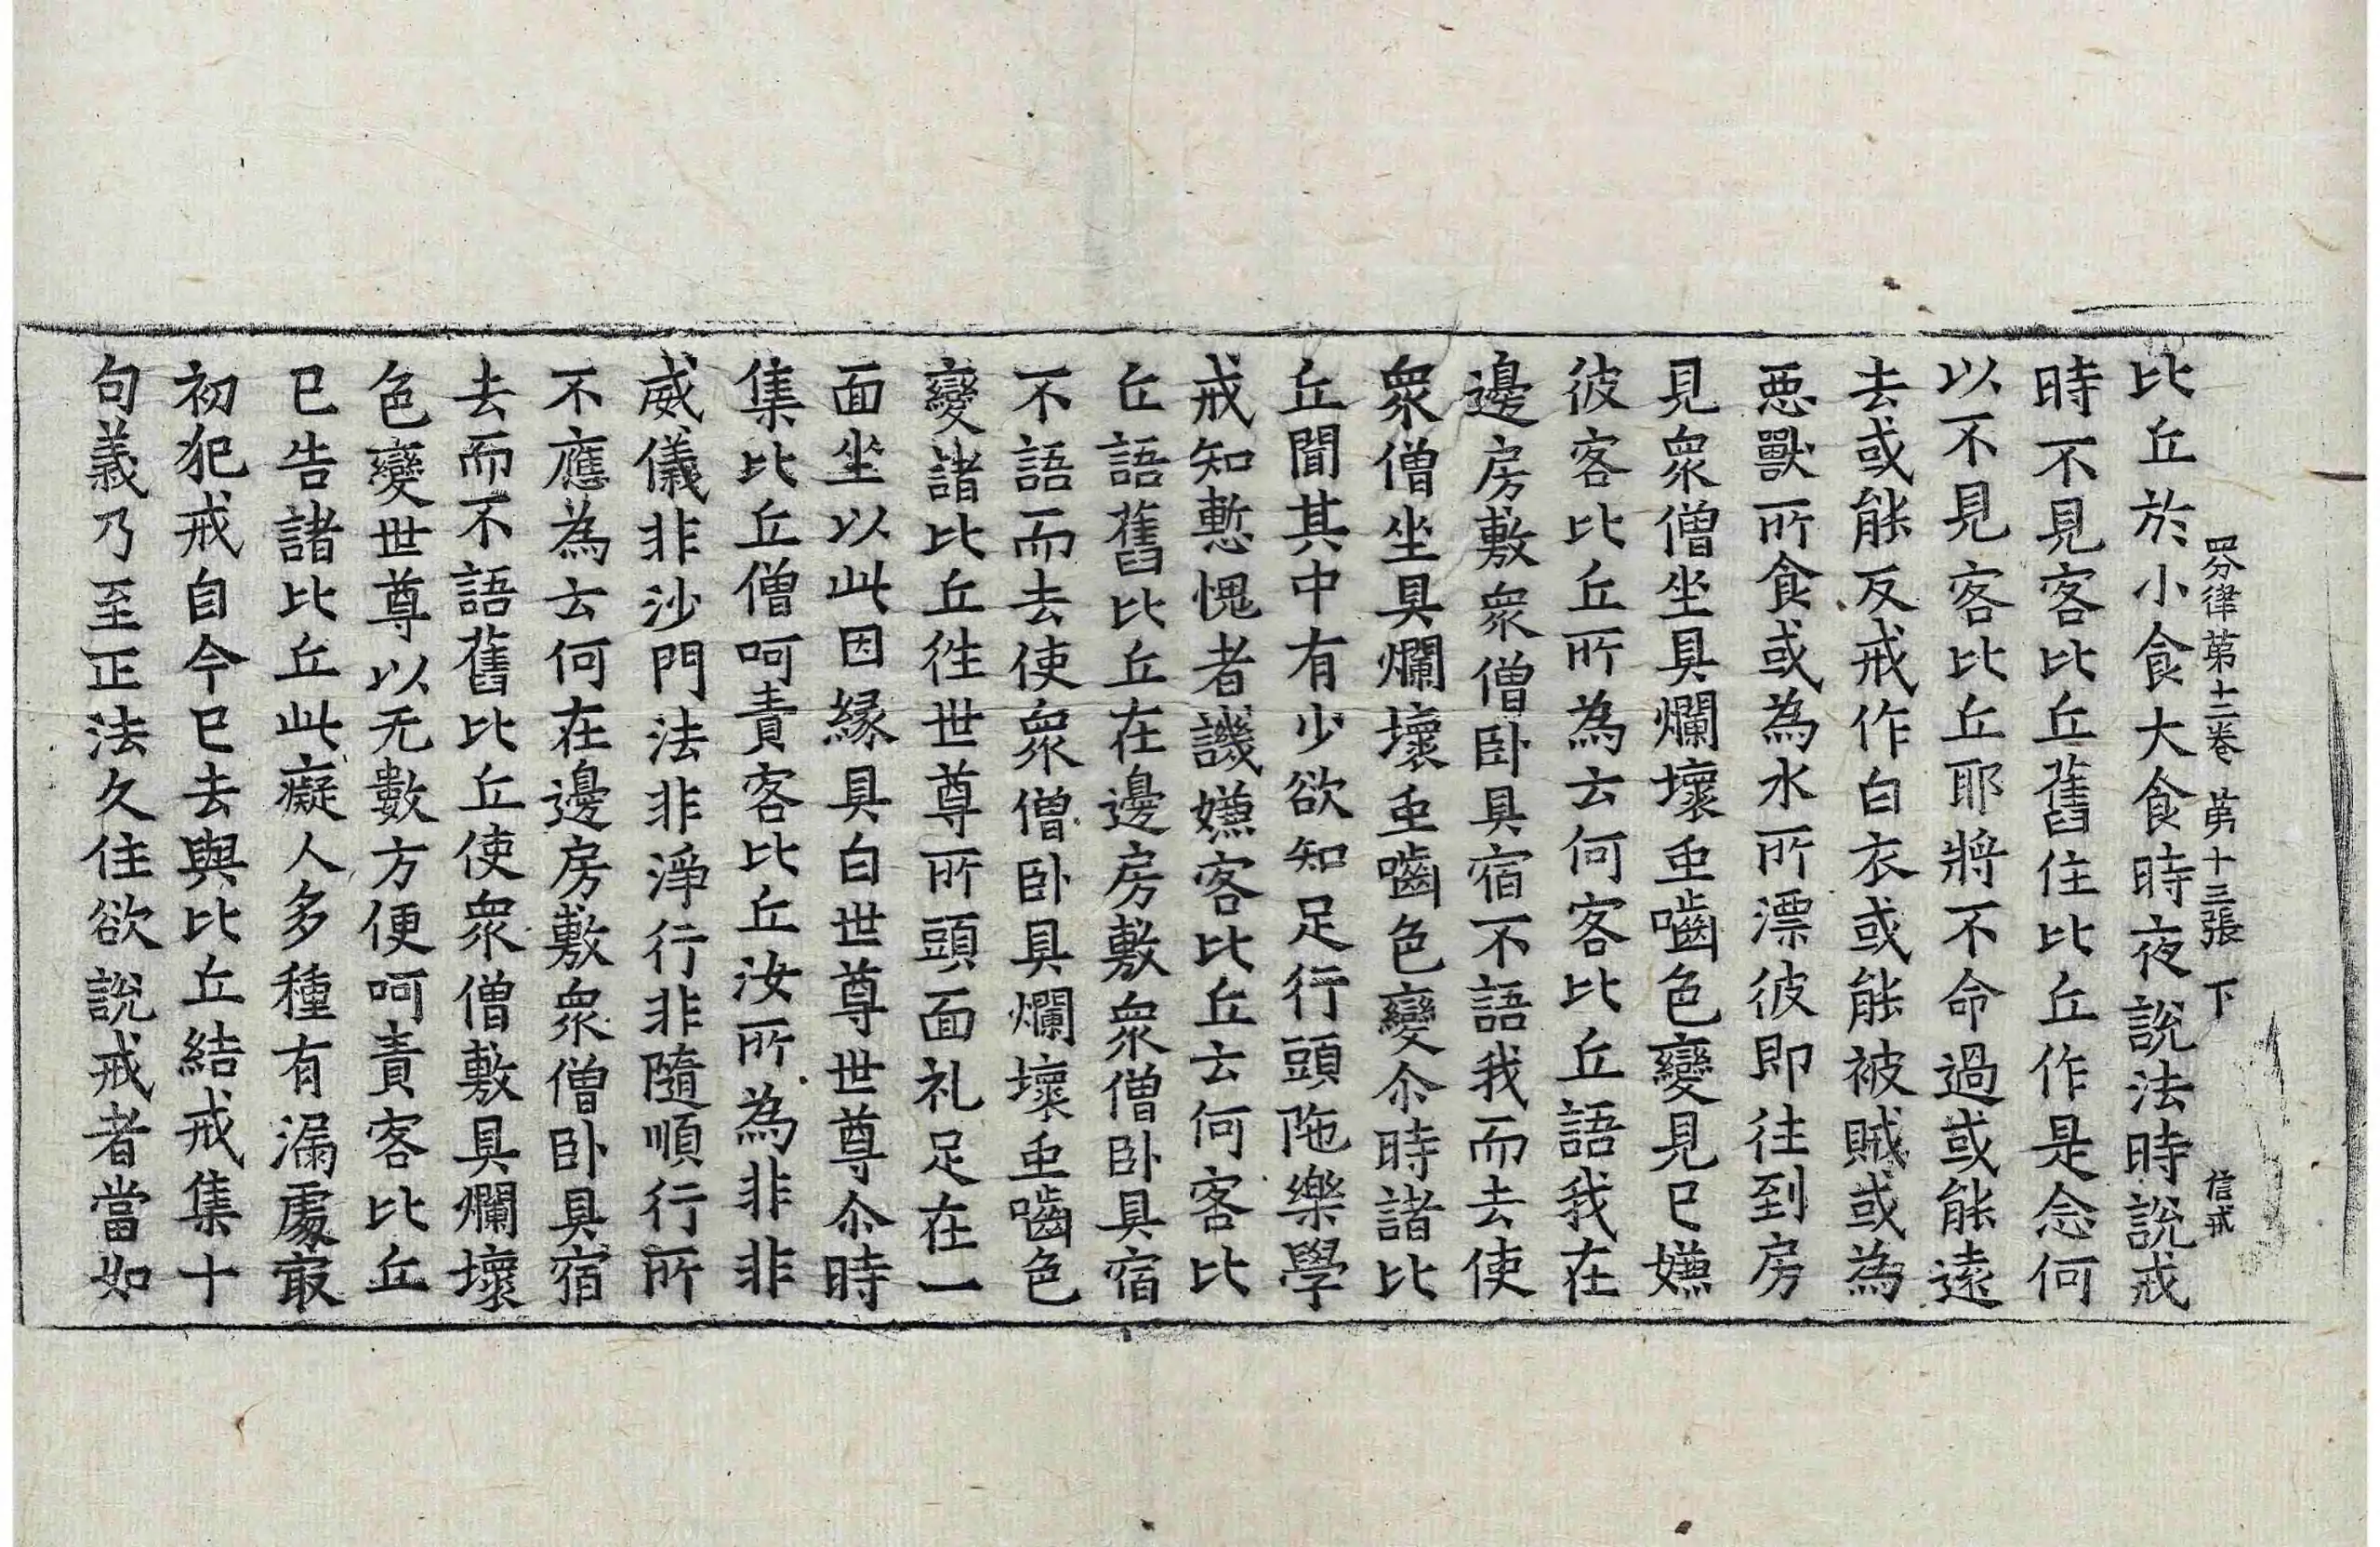 四分律第十二卷 第十三張 下 信戒
比丘於小食大食時夜說法時說戒
時不見客比丘舊住比丘作是念何
以不見客比丘耶將不命過或能遠
去或能反戒作白衣或能被賊或為
惡獸所食或為水所漂彼即往到房
見衆僧坐具爛壞虫嚙色變見已嫌
彼客比丘所為云何客比丘語我在
邊房敷衆僧卧具宿不語我而去使
衆僧坐具爛壞虫嚙色變尒時諸比
丘聞其中有少欲知足行頭陁樂學
戒知慙愧者譏嫌客比丘云何客比
丘語舊比丘在邊房敷衆僧卧具宿
不語而去使衆僧卧具爛壞虫嚙色
變諸比丘徃世尊所頭面礼足在一
面坐以此因緣具白世尊世尊尒時
集比丘僧呵責客比丘汝所為非非
威儀非沙門法非淨行非隨順行所
不應為云何在邊房敷衆僧卧具宿
去而不語舊比丘使衆僧敷具爛壞
色變世尊以无數方便呵責客比丘
已告諸比丘此癡人多種有漏處㝡
初犯戒自今已去與比丘結戒集十
句義乃至正法久住欲說戒者當如